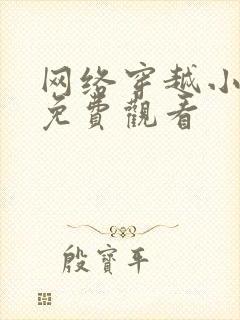 网络穿越小
免費觀看
殷寶平